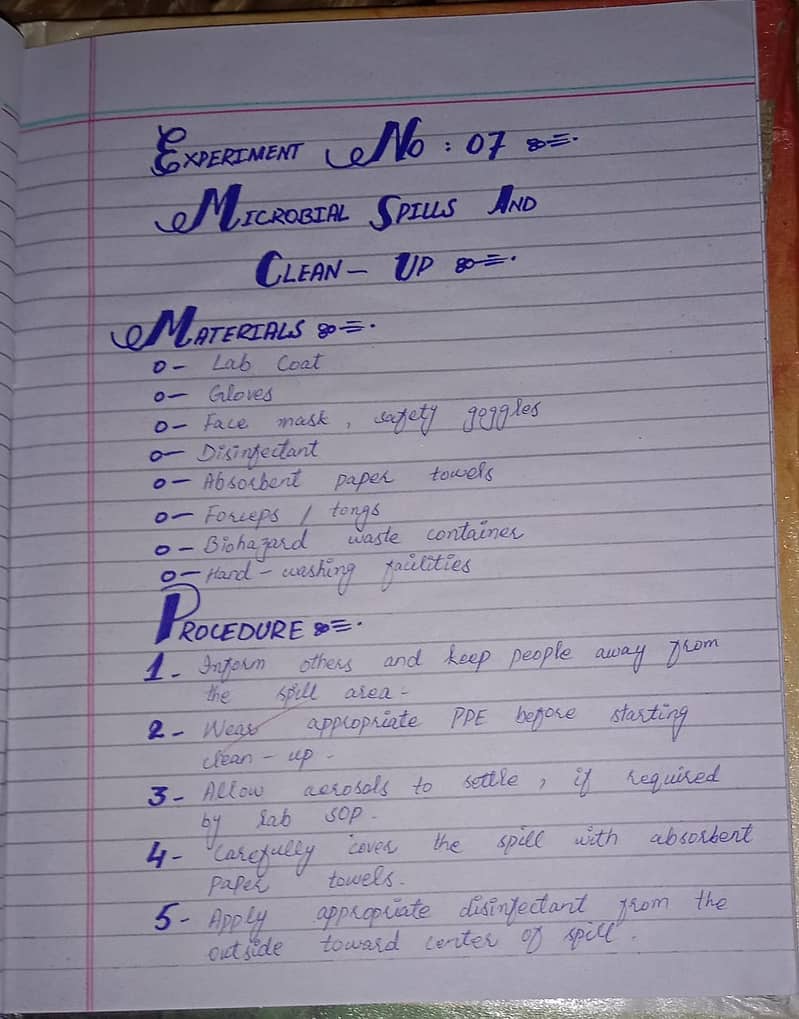 EXPERIMENT NO : 07
MICROBIAL SPILLS AND
CLEAN - UP
MATERIALS
o- Lab Coat
o- Gloves
o- Face mask , safety goggles
o- Disinfectant
o- Absorbent paper towels
o- Forceps / tongs
o- Biohazard waste container
o- Hand-washing facilities
PROCEDURE
1- Inform others and keep people away from
the spill area-
2- Wear appropriate PPE before starting
clean-up-
3- Allow aerosols to settle , if required
by lab SOP-
4- Carefully cover the spill with absorbent
paper towels-
5- Apply appropriate disinfectant from the
outside toward center of spill.